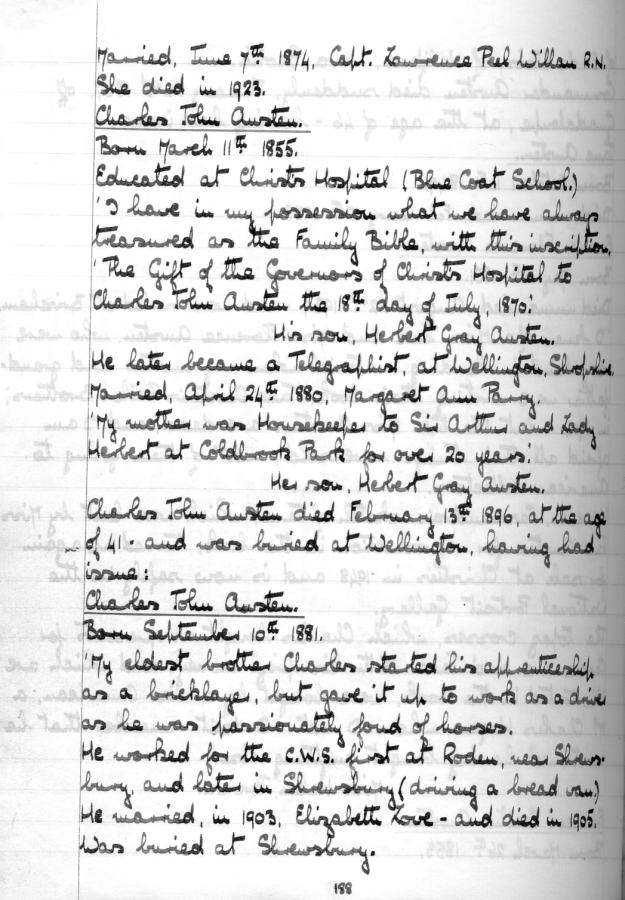 Married, June 7th 1874, Capt. Lawrence Peel Willan R.N.
She died in 1923.
Charles John Austen.
Born March 11th 1855.
Educated at Christ's Hospital (Blue Coat School.)
'I have in my possession what we have always
treasured as the Family Bible, with this inscription,
'The Gift of the Governors of Christ's Hospital to
Charles John Austen the 18th day of July, 1870'.
His son, Herbert Gray Austen.
He later became a Telegraphist, at Wellington, Shropshire.
Married, April 24th 1880, Margaret Ann Parry.
'My mother was Housekeeper to Sir Arthur and Lady
Herbert at Coldbrook Park for over 20 years'.
Her son, Herbert Gray Austen.
Charles John Austen died February 13th 1896, at the age
of 41 - and was buried at Wellington, having had
issue:
Charles John Austen.
Born September 10th 1881.
'My eldest brother Charles started his apprenticeship
as a bricklayer, but gave it up to work as a driver
as he was passionately fond of horses.
He worked for the C.W.S. first at Roden, near Shrews-
bury, and later in Shrewsbury (driving a bread van.)
He married, in 1903, Elizabeth Love - and died in 1905.
Was buried at Shrewsbury.
188